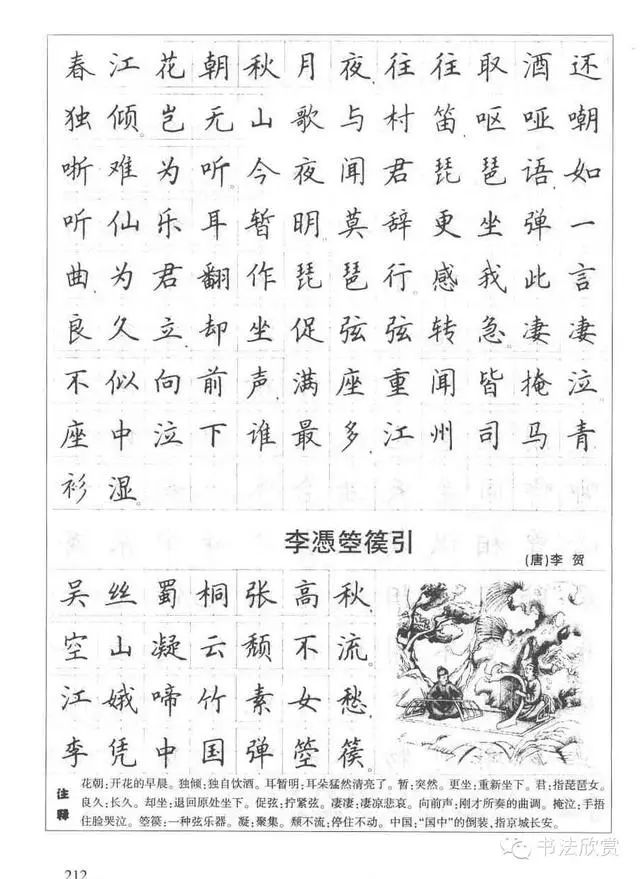 春江花朝秋月夜,往往取酒还
独倾。岂无山歌与村笛,呕哑嘲
哳难为听。今夜闻君琵琶语,如
听仙乐耳暂明。莫辞更坐弹一
曲,为君翻作琵琶行。感我此言
良久立,却坐促弦弦转急。凄凄
不似向前声,满座重闻皆掩泣。
座中泣下谁最多,江州司马青
衫湿。
李憑箜篌引
(唐)李 贺
吴丝蜀桐张高秋,
空山凝云颓不流。
江娥啼竹素女愁,
李凭中国弹箜篌。
注释
花朝:开花的早晨。独倾:独自饮酒。耳暂明:耳朵猛然清亮了。暂:突然。更坐:重新坐下。君:指琵琶女。
良久:长久。却坐:退回原处坐下。促弦:拧紧弦。凄凄:凄凉悲哀。向前声:刚才所奏的曲调。掩泣:手捂
住脸哭泣。箜篌:一种弦乐器。凝:聚集。颓不流:停住不动。中国:“国中”的倒装,指京城长安。
书法欣赏
212